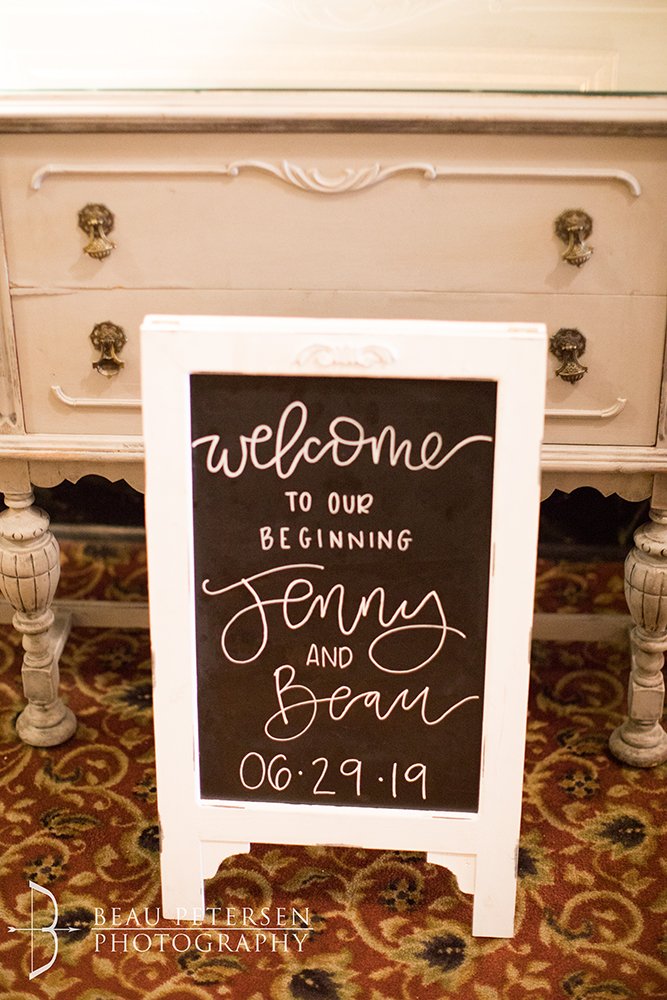 welcome
TO OUR
BEGINNING
Jenny
AND
Beau
06·29·19
BEAU PETERSEN
PHOTOGRAPHY